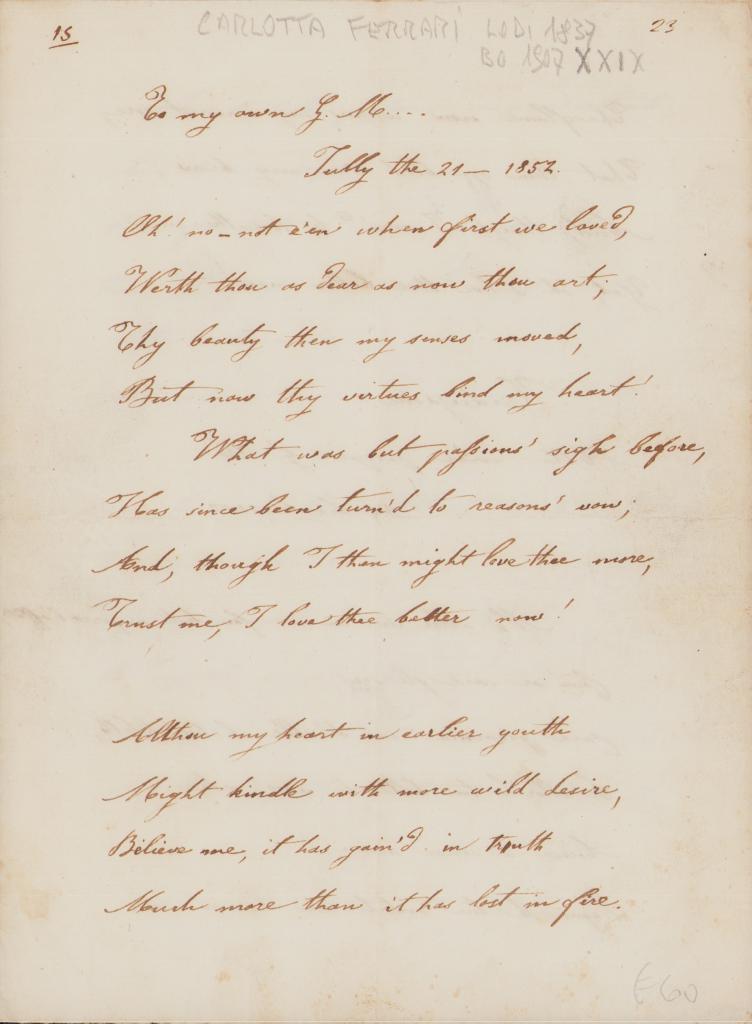 15
CARLOTTA FERRARI LODI 1837
23
BO 1907 XXIX
To my own G. M....
Jully the 21 — 1852.
Oh! no – not e'en when first we loved,
Werth thou as dear as now thou art;
Thy beauty then my senses moved,
But now thy virtues bind my heart!
What was but passions' sigh before,
Has since been turn'd to reasons' vow;
And, though I then might love thee more,
Trust me, I love thee better now!
Althou my heart in earlier youth
Might kindle with more wild desire,
Believe me, it has gain'd in truth
Much more than it has lost in fire.
€60